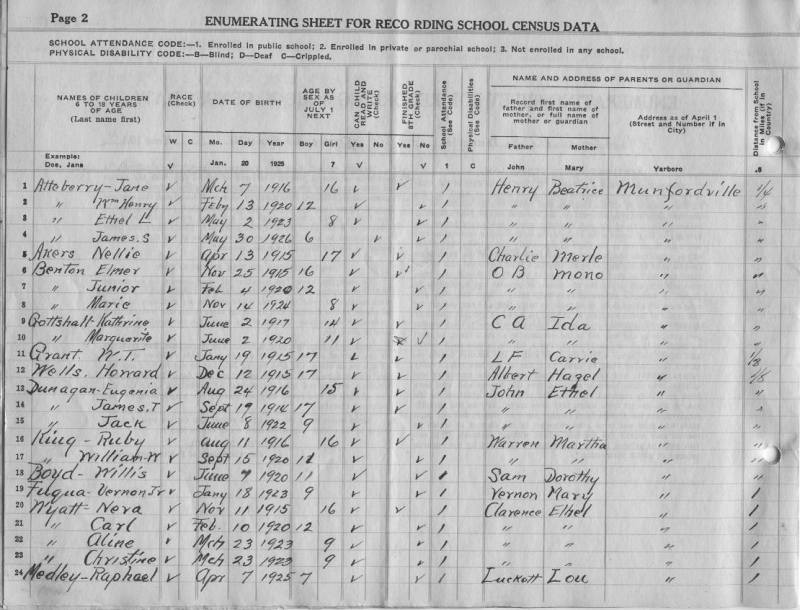 Page 2
ENUMERATING SHEET FOR RECO RDING SCHOOL CENSUS DATA
SCHOOL ATTENDANCE CODE:—1. Enrolled in public school; 2. Enrolled in private or parochial school; 3. Not enrolled in any school.
PHYSICAL DISABILITY CODE:—B—Blind; D—Deaf C—Crippled.
NAMES OF CHILDREN 6 TO 18 YEARS OF AGE (Last name first) RACE (Check) DATE OF BIRTH AGE BY SEX AS OF JULY 1 NEXT CAN CHILD READ AND WRITE (Check) FINISHED 8TH GRADE (Check) School Attendance (See Code) Physical Disabilities (See Code) NAME AND ADDRESS OF PARENTS OR GUARDIAN Distance from School in Miles (if in Country)
Record first name of father and first name of mother, or full name of mother or guardian Address as of April 1 (Street and Number if in City)
W C Mo. Day Year Boy Girl Yes No Yes No Father Mother
Example: Doe, Jane V Jan. 20 1925 7 V V 1 C John Mary Yarboro .5
1 Atteberry-Jane v Mch 7 1916 16 v v 1 Henry Beatrice Munfordville 1/4
2 " Wm Henry v Feby 13 1920 12 v v 1 " " " "
3 " Ethel L v May 2 1923 8 v v 1 " " " "
4 " James.S v May 30 1926 6 v v 1 " " " "
5 Akers Nellie v Apr 13 1915 17 v v 1 Charlie Merle " "
6 Benton Elmer v Nov 25 1915 16 v v 1 O B mono " "
7 " Junior v Feb 4 1920 12 v v 1 " " " "
8 " Marie v Nov 14 1924 8 v v 1 " " " "
9 Gottshalt-Kathrine v June 2 1917 14 v v 1 C A Ida " "
10 " Marguerite v June 2 1920 11 v v 1 " " " "
11 Grant W.T. v Jany 19 1915 17 v v 1 LF Carrie "
12 Wells. Howard v Dec 12 1915 17 v v 1 Albert Hazel "
13 Dunagan-Eugenia v Aug 24 1916 15 v v 1 John Ethel " "
14 " James.T v Sept 19 1914 17 v v 1 " " " "
15 " Jack v June 8 1922 9 v v 1 " " " "
16 King-Ruby v Aug 11 1916 16 v v 1 Warren Martha " "
17 " William-W v Sept 15 1920 11 v v 1 " " " "
18 Boyd-Willis v June 7 1920 11 v v 1 Sam Dorothy " 1
19 Fuqua-Vernon Jr v Jany 18 1923 9 v v 1 Vernon Mary " 1
20 Wyatt-Neva v Nov 11 1915 16 v v 1 Clarence Ethel " 1
21 " Carl v Feb. 10 1920 12 v v 1 " " " 1
22 " Aline v Mch 23 1923 9 v v 1 " " " 1
23 " Christine v Mch 23 1923 9 v v 1 " " " 1
24 Medley-Raphael v Apr 7 1925 7 v v 1 Luckett Lou " 1